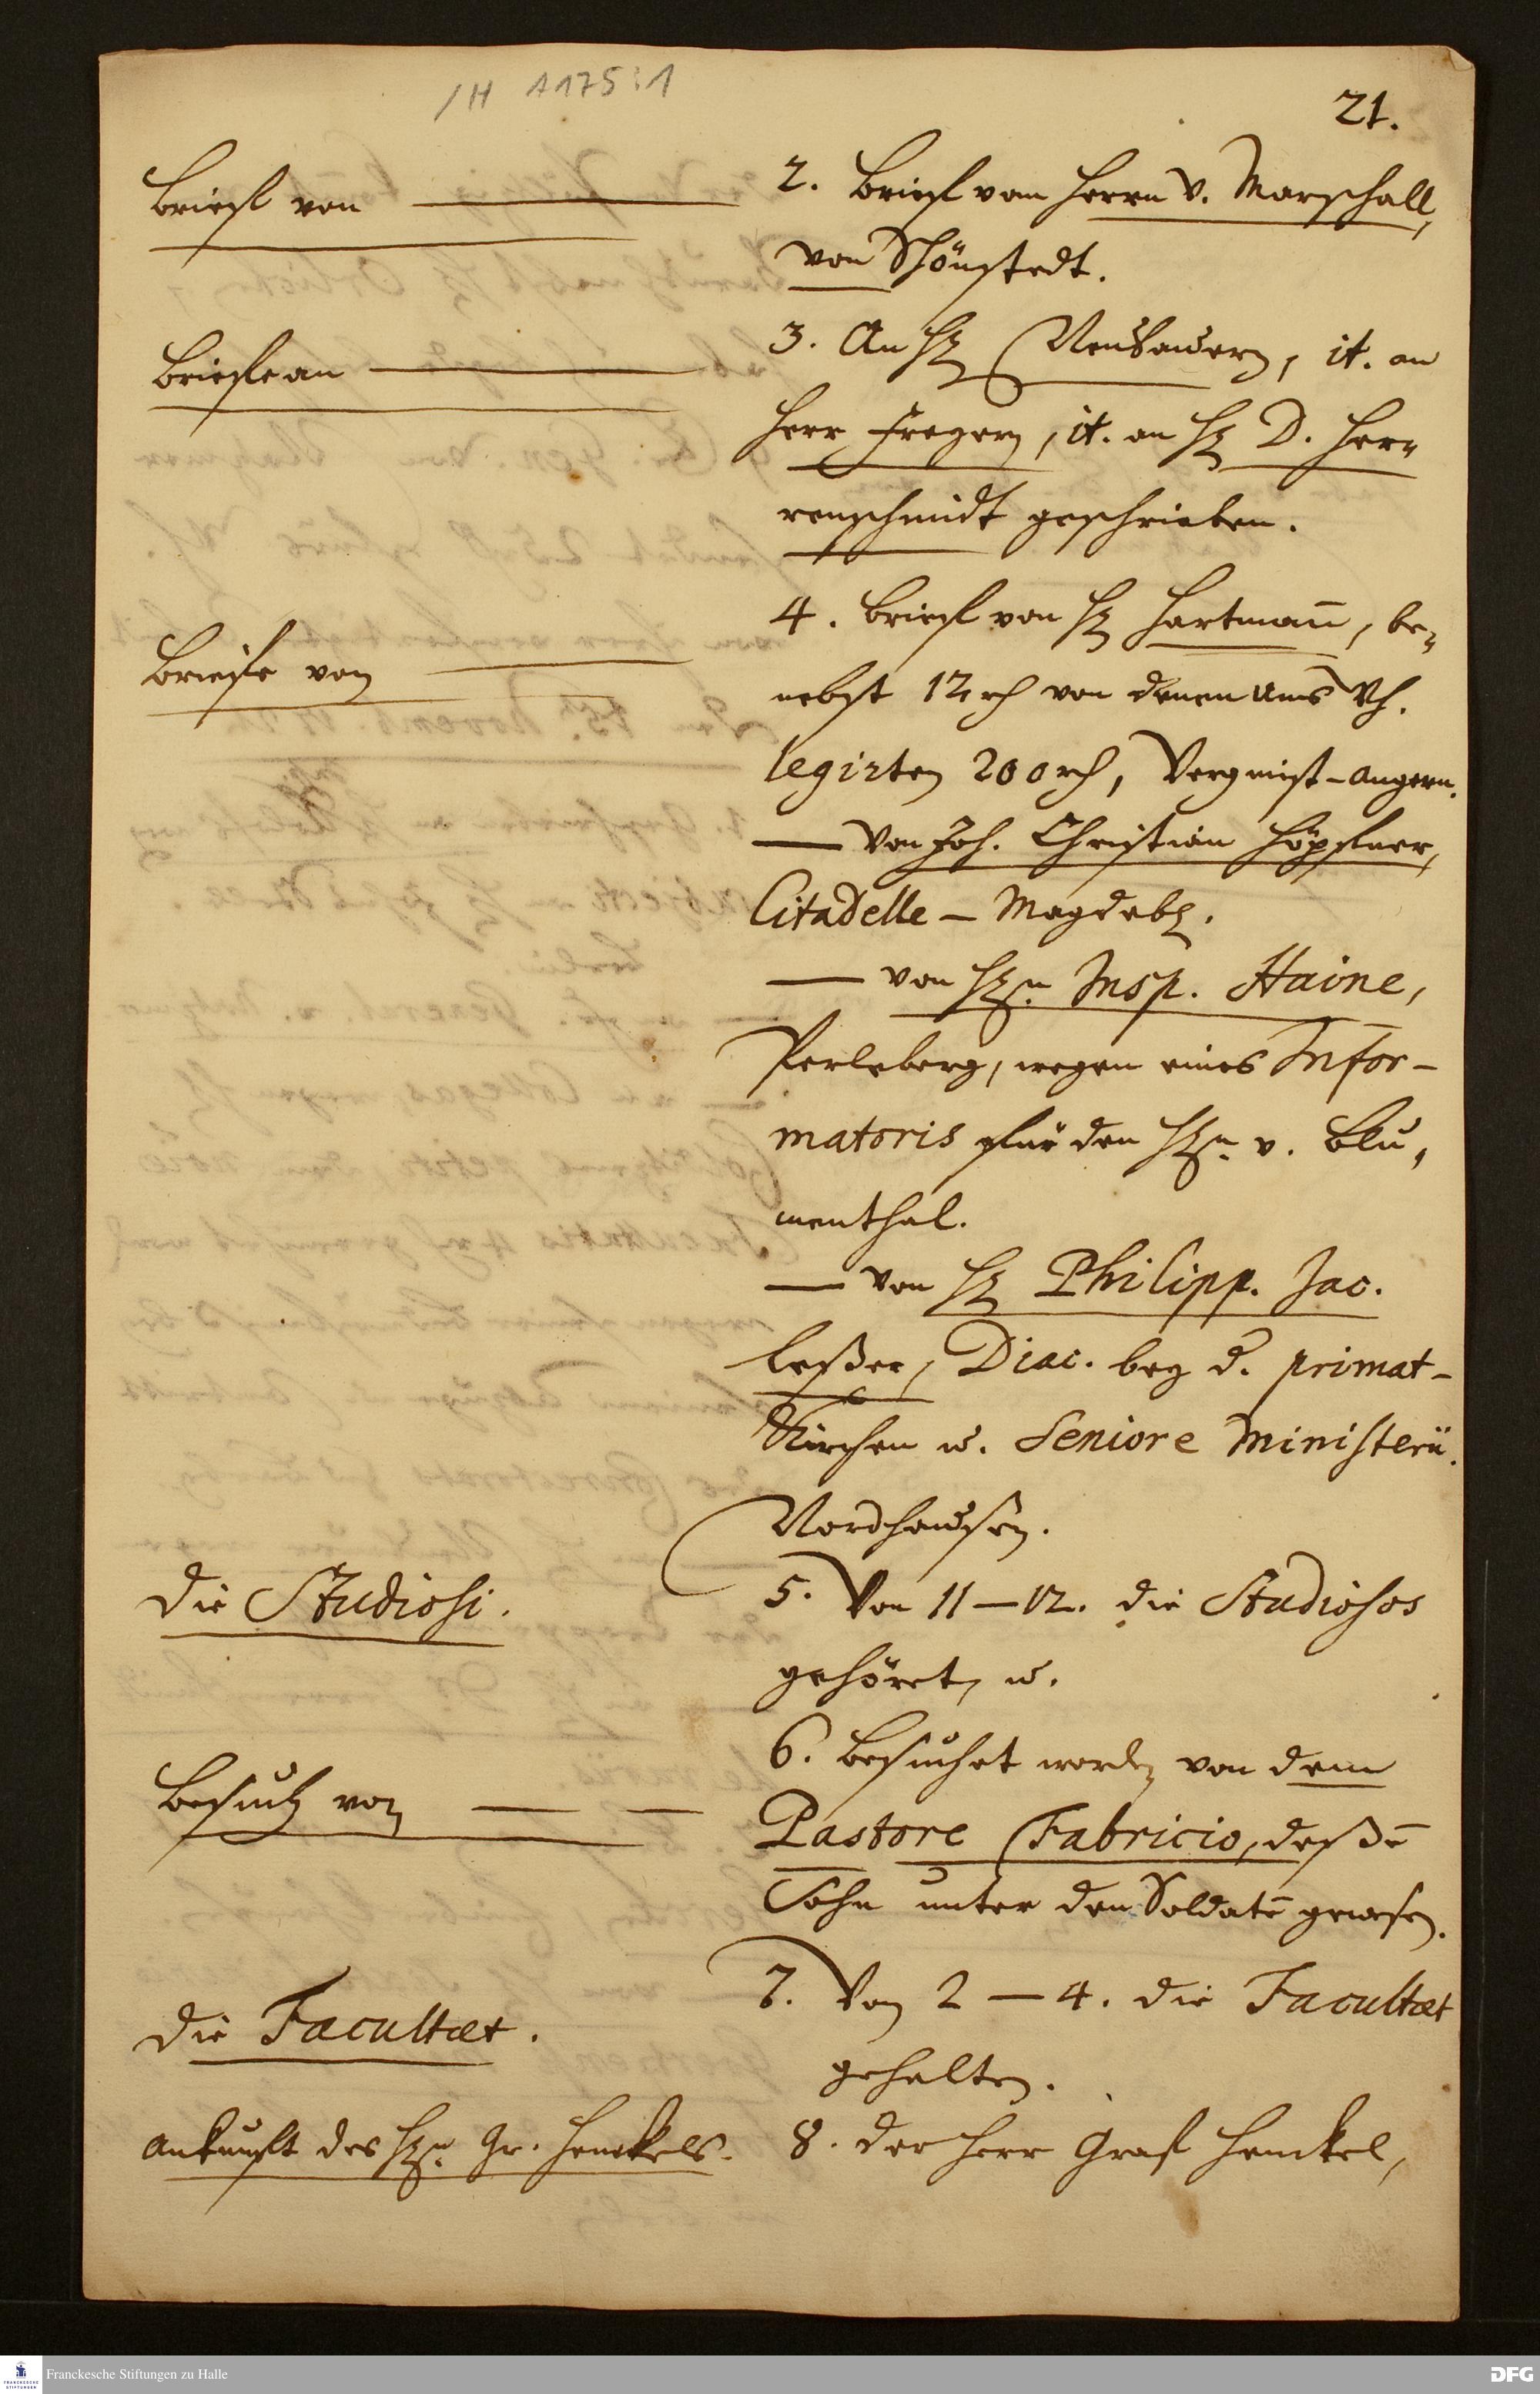 /H A 175:1
21.
Brief von
2. Brief vom Herrn v. Marschall,
von Schönstedt.
Briefe an
3. An H. Neubauern, it. an
Herr Fregern, it. an H. D. Her-
renschmidt geschrieben.
Briefe von
4. Brief von H. Hartmañ, be-
nebst 12 rth von denen uns
legirten 200 rth, Angern.
— von Joh. Christian Höpfner,
Citadelle – Magdeb.
— von Hrn. Insp. Haine,
Perleberg, wegen eines Infor-
matoris für den Hrn. v. Blu-
menthal.
— von H. Philipp. Jac.
Leßer, Diac. bey d. primat-
Kirchen u. Seniore Ministerii.
Nordhausen.
Die Studiosi.
5. Von 11–12. die Studiosos
gehöret, u.
Besuch von — —
6. Besuchet worden von dem
Pastore Fabricio, deßē
Sohn unter den Soldatē gewesen.
Die Facultæt.
7. Von 2 – 4. die Facultæt
gehalten.
Ankunft des Hrn. Gr. Henckels.
8. Der Herr Graf Henckel,
Franckesche Stiftungen zu Halle
FRANCKESCHE STIFTUNGEN
DFG